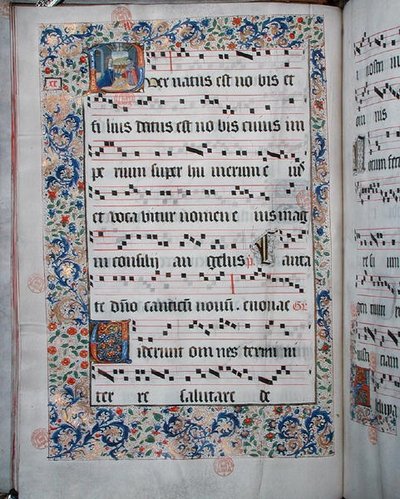 Puer natus est no bis et
fi lius datus est no bis cuius im
pe rium super hu merum e ius
et voca bitur nomen e ius mag
ni consilij an gelus p̄ Canta
te dño canticū novū. evovae Gr
Viderunt om nes termi ni
ter re salutare de